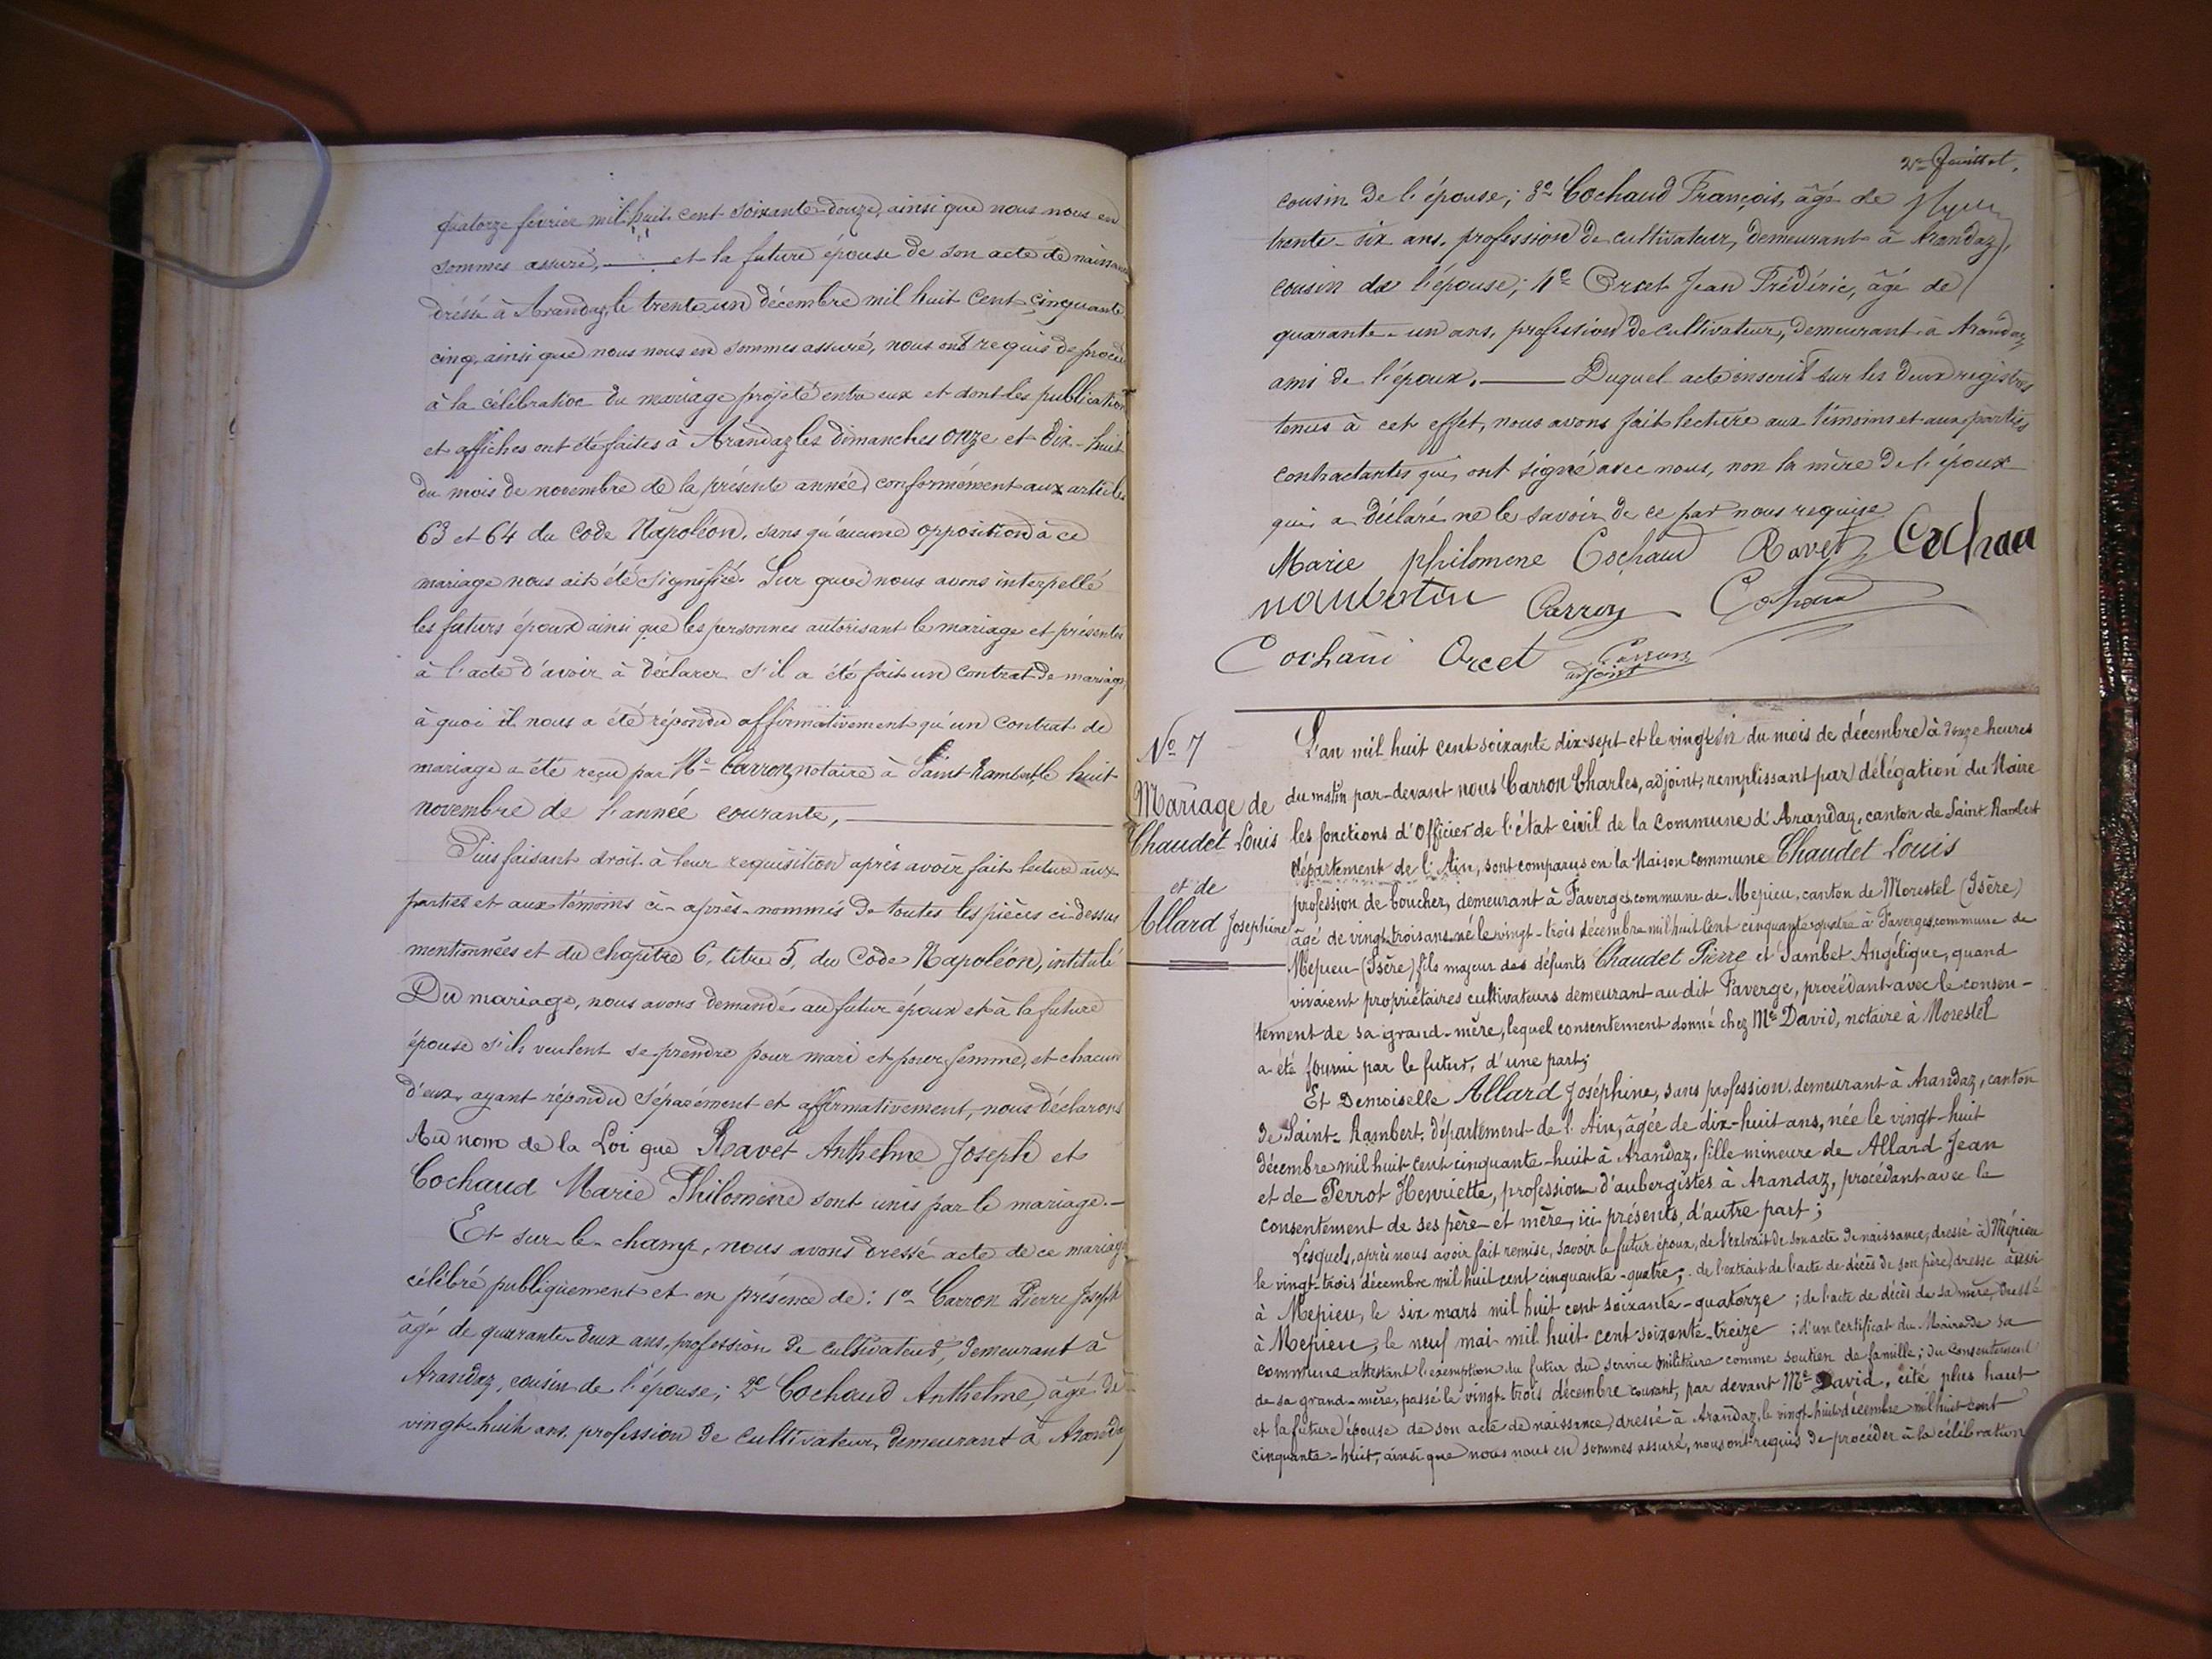 quatorze février mil huit cent soixante-douze, ainsi que nous nous en
sommes assuré, et la future épouse de son acte de naissance
dressé à Arandaz, le trente un décembre mil huit cent cinquante
cinq, ainsi que nous nous en sommes assuré, nous ont requis de procéder
à la célébration du mariage projeté entre eux et dont les publications
et affiches ont été faites à Arandaz les dimanches onze et dix-huit
du mois de novembre de la présente année, conformément aux articles
63 et 64 du Code Napoléon, sans qu'aucune opposition à ce
mariage nous ait été signifiée. Sur quoi nous avons interpellé
les futurs époux ainsi que les personnes autorisant le mariage et présentes
à l'acte d'avoir à déclarer s'il a été fait un contrat de mariage,
à quoi il nous a été répondu affirmativement qu'un contrat de
mariage a été reçu par Me Carron, notaire à Saint Rambert, le huit
novembre de l'année courante,
Puis faisant droit à leur requisition après avoir fait lecture aux
parties et aux témoins ci-après-nommés de toutes les pièces ci-dessus
mentionnées et du chapitre 6, titre 5, du Code Napoléon, intitulé
Du mariage, nous avons demandé au futur époux et à la future
épouse s'ils veulent se prendre pour mari et pour femme, et chacun
d'eux ayant répondu séparément et affirmativement, nous déclarons
Au nom de la Loi que Ravet Anthelme Joseph et
Cochaud Marie Philomène sont unis par le mariage.-
Et sur-le-champ, nous avons dressé acte de ce mariage
célébré publiquement et en présence de: 1o Carron Pierre Joseph
âgé de quarante-deux ans, profession de cultivateur, demeurant à
Arandaz, cousin de l'épouse; 2o Cochaud Anthelme, âgé de
vingt-huit ans, profession de cultivateur, demeurant à Arandaz
2e feuillet.
cousin de l'épouse; 3o Cochaud François, âgé de
trente-six ans, profession de cultivateur, demeurant à Arandaz,
cousin de l'épouse; 4o Orcet Jean Frédéric, âgé de
quarante-un ans, profession de cultivateur, demeurant à Arandaz
ami de l'époux. Duquel acte inscrit sur les deux registres
tenus à cet effet, nous avons fait lecture aux témoins et aux parties
contractantes qui ont signé avec nous, non la mère de l'époux
qui a déclaré ne le savoir de ce par nous requise
Marie philomene Cochaud Ravet Cochau
Carron Cochaud
Cochaud Orcet Carron
adjoint
No 7
Mariage de
Chaudet Louis
et de
Allard Josephine
L'an mil huit cent soixante dix-sept et le vingt six du mois de décembre à douze heures
du matin par-devant nous Carron Charles, adjoint, remplissant par délégation du Maire
les fonctions d'Officier de l'état civil de la Commune d'Arandaz, canton de Saint Rambert
département de l'Ain, sont comparus en la Maison Commune Chaudet Louis
profession de boucher, demeurant à Faverges commune de Mepieu, canton de Morestel (Isère)
âgé de vingt-trois ans, né le vingt-trois décembre mil huit cent cinquante quatre à Faverges commune de
Mepieu (Isère) fils majeur des défunts Chaudet Pierre et Sambet Angélique, quand
vivaient propriétaires cultivateurs demeurant au dit Faverge, procédant avec le consen-
tement de sa grand-mère, lequel consentement donné chez Me David, notaire à Morestel
a été fourni par le futur, d'une part;
Et Demoiselle Allard Joséphine, sans profession demeurant à Arandaz, canton
de Saint-Rambert, département de l'Ain, âgée de dix-huit ans, née le vingt-huit
décembre mil huit cent cinquante-huit à Arandaz, fille mineure de Allard Jean
et de Perrot Henriette, profession d'aubergistes à Arandaz, procédant avec le
consentement de ses père et mère, ici présents, d'autre part;
Lesquels, après nous avoir fait remise, savoir le futur époux, de l'extrait de son acte de naissance, dressé à Mépieu
le vingt-trois décembre mil huit cent cinquante-quatre; de l'extrait de l'acte de décès de son père, dressé aussi
à Mepieu, le six mars mil huit cent soixante-quatorze; de l'acte de décès de sa mère, dressé
à Mepieu, le neuf mai mil huit cent soixante-treize; d'un certificat du Maire de sa
commune attestant l'exemption du futur du service militaire comme soutien de famille; du consentement
de sa grand-mère, passé le vingt-trois décembre courant, par devant Me David, cité plus haut
et la future épouse de son acte de naissance, dressé à Arandaz, le vingt-huit décembre mil huit cent
cinquante-huit, ainsi que nous nous en sommes assuré, nous ont requis de procéder à la célébration